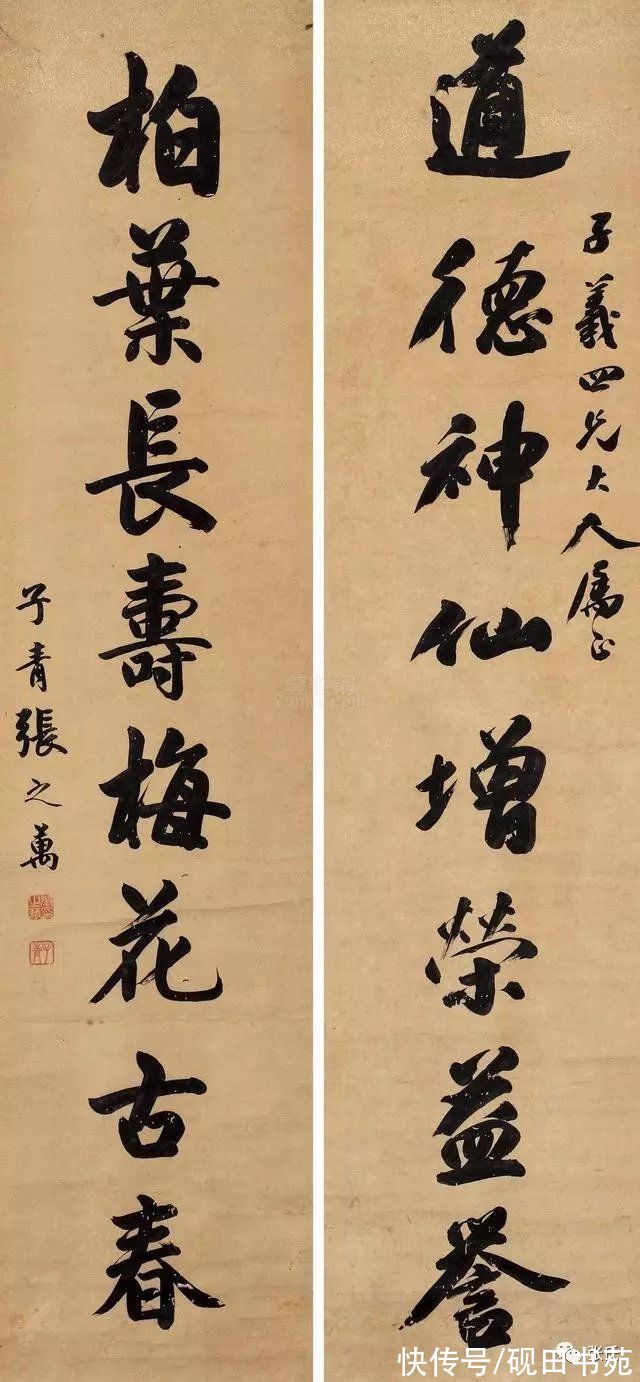 子義四兄大人屬正
道德神仙增榮益譽
柏葉長壽梅花古春
子青張之萬
快传号/砚田书苑